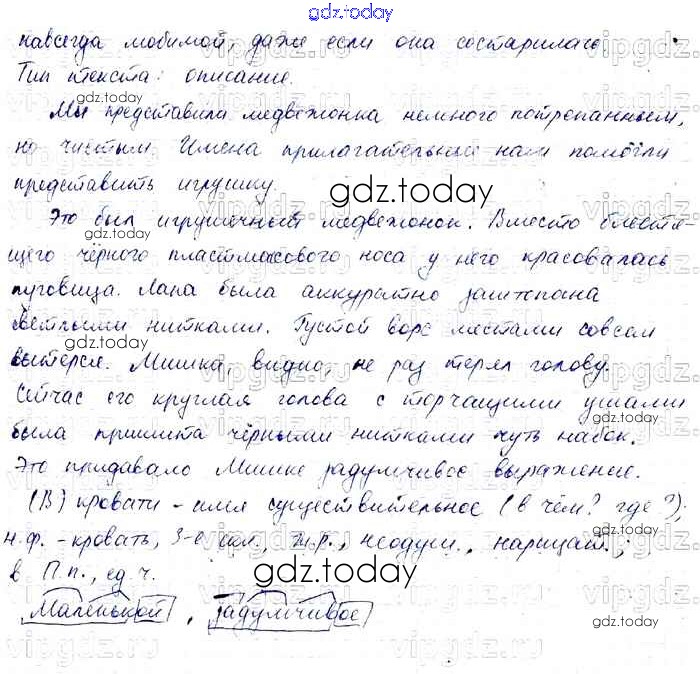 gdz.today
навсегда любимой, даже если она состарилась.
Тип текста: описание.
gdz.today
Мы представили медвежонка немного потрепанным,
но чистым. Имена прилагательные нам помогли
представить игрушку.
gdz.today
Это был игрушечный медвежонок. Вместо блестя-
щего чёрного пластмасового носа у него красовалась
пуговица. Лапа была аккуратно заштопана
gdz.today
светлыми нитками. Густой ворс местами совсем
вытерся. Мишка, видно, не раз терял голову.
gdz.today
Сейчас его круглая голова с торчащими ушами
gdz.today
была пришита чёрными нитками чуть набок.
Это придавало Мишке задумчивое выражение.
(В) кровати - имя существительное (в чём? где?);
н.ф. - кровать, 3-е скл., ж.р., неодуш., нарицат.;
в П.п., ед.ч.
gdz.today
Маленькой, задумчивое
gdz.today